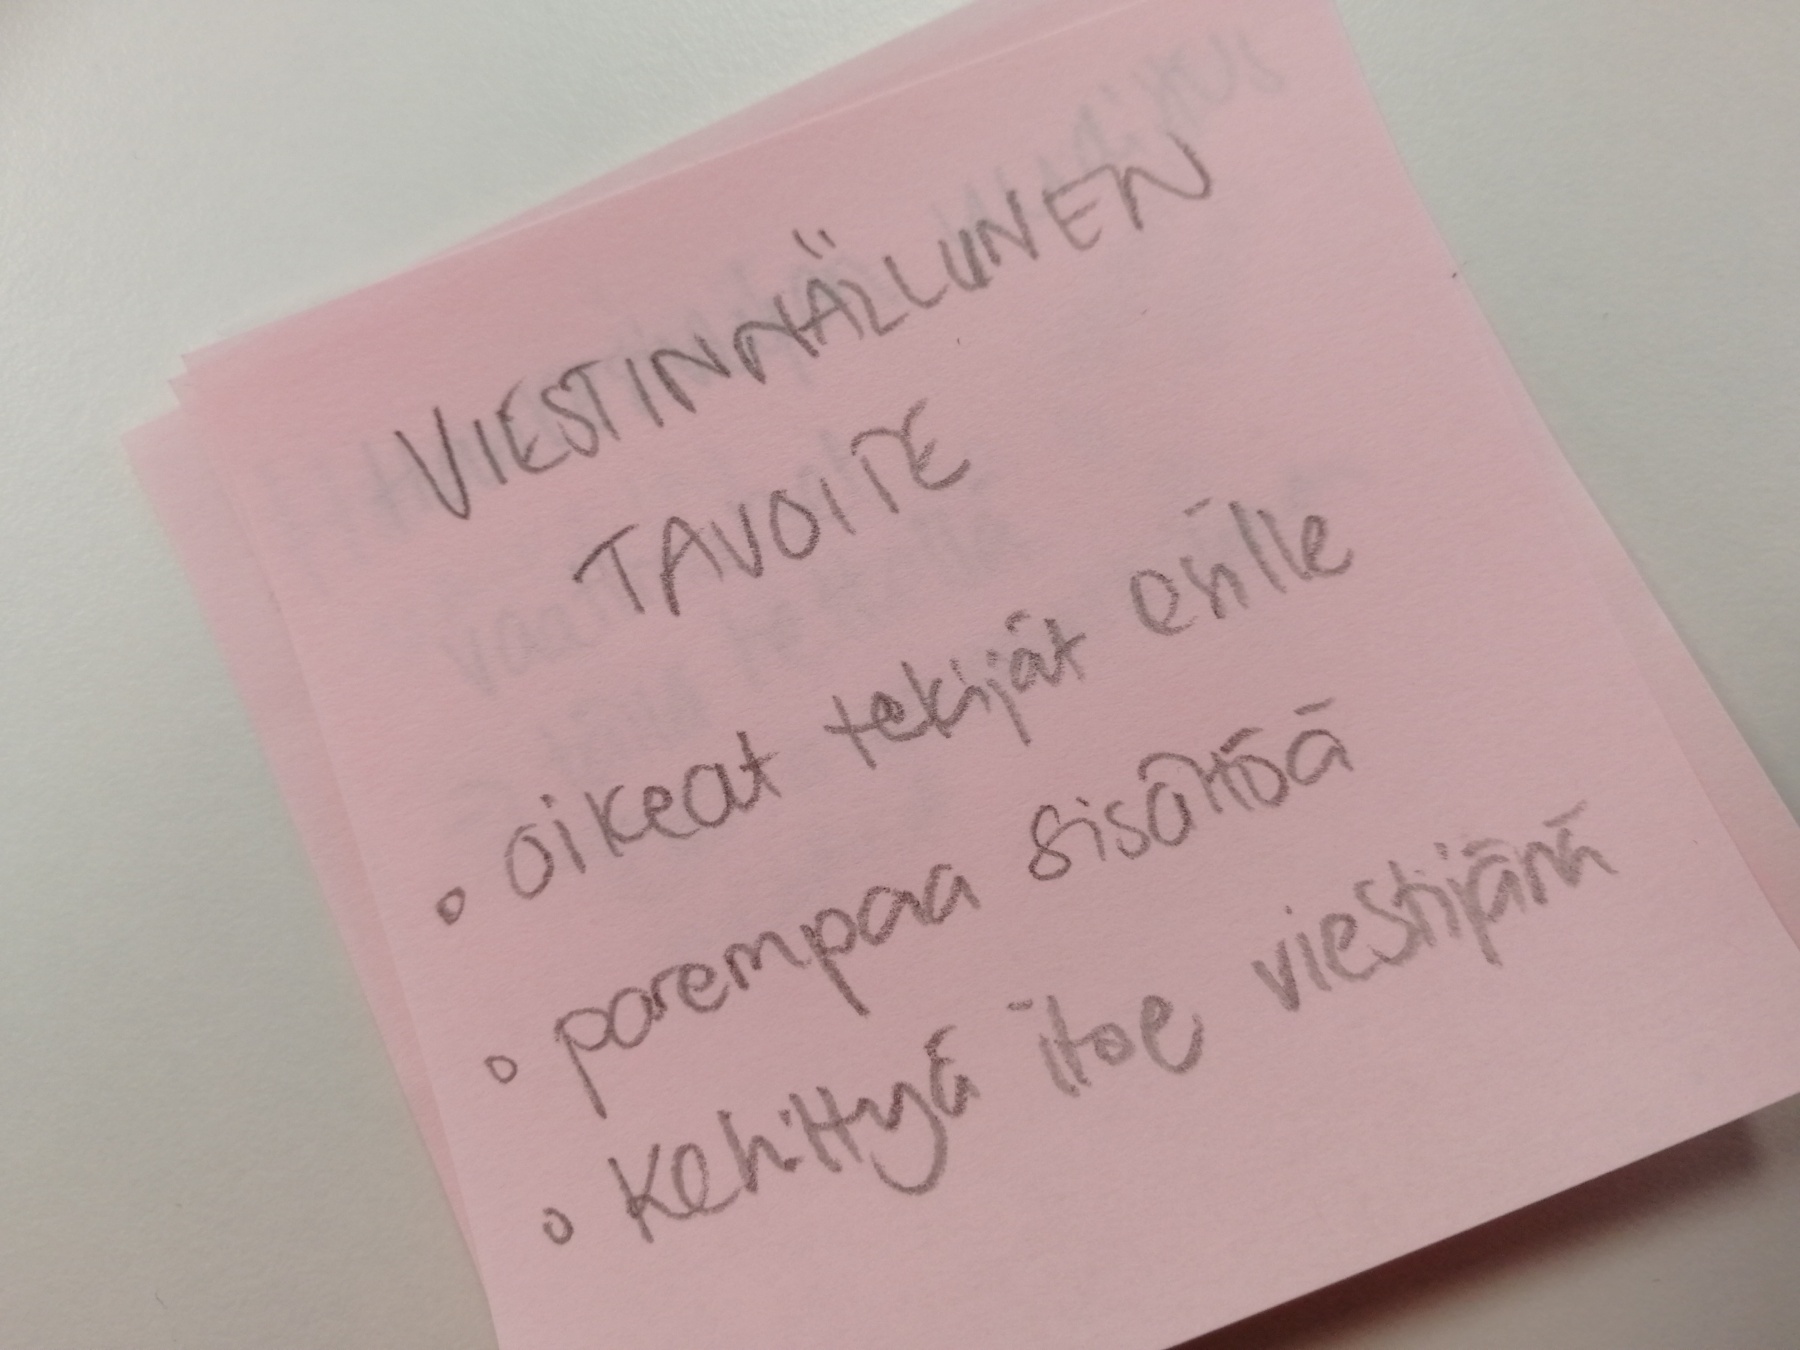 VIESTINNÄLLINEN
TAVOITE
• oikeat tekijät esille
• parempaa sisältöä
• kehittyä itse viestijänä